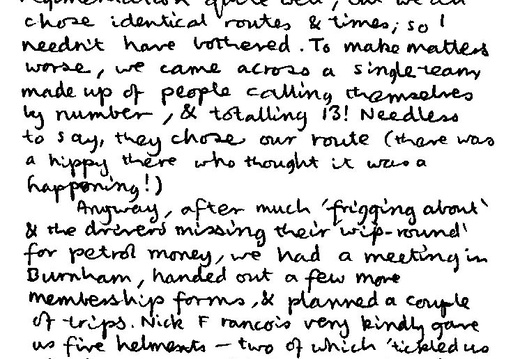 quite well, but we all
chose identical routes & times, so I
needn't have bothered. To make matters
worse, we came across a single team
made up of people calling themselves
by number, & totalling 13! Needless
to say, they chose our route (there was
a hippy there who thought it was a
happening!)
Anyway, after much 'frigging about'
& the drivers missing their 'wip-round'
for petrol money, we had a meeting in
Burnham, handed out a few more
membership forms, & planned a couple
of trips. Nick Francois very kindly gave
us five helments - two of which 'tickled us